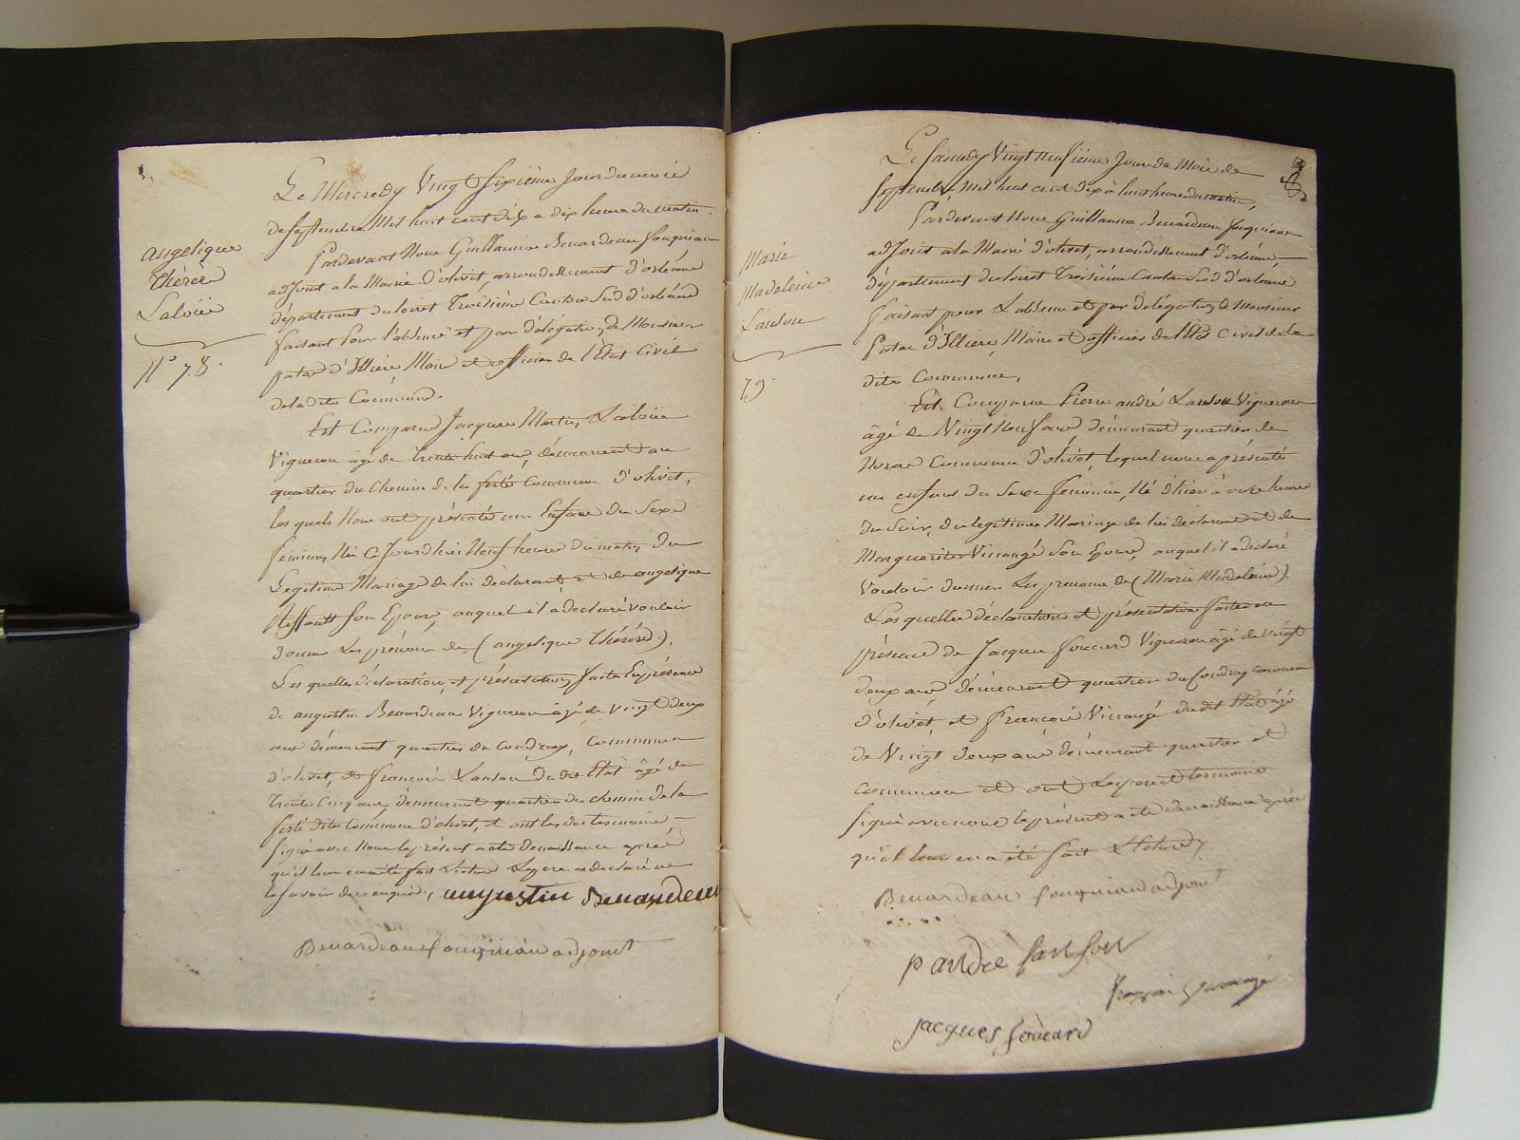 angelique
thérèse
Laloüe
N° 78.
Le Mercredy Vingt Sixième Jour du mois
de Septembre Mil huit cent dix a dix heures du matin
Pardevant Nous Guillaume Benardeau Jouquiau
adjoint a la Mairie d'olivet, arrondissement d'orléans
département du loiret Troisième Canton Sud d'orléans
faisant pour l'absence et par délégation de Monsieur
patas d'Illiers Maire et officier de l'Etat Civil
de la dite Commune.
Est Comparu Jacques Martin Laloüe
Vigneron âgé de trente huit ans, démeurant au
quartier du Chemin de la ferté Commune d'olivet,
les quels Nous ont présenté un Enfant du Sexe
féminin, Né Ce Jourd'hui Neuf heures du matin, du
Legitime Mariage de lui déclarant et de angelique
son Epouse, auquel il a déclaré vouloir
donner Les prénoms de (angelique thérèse).
Les quelles déclaration, et présentation faite En présence
de augustin Benardeau Vigneron âgé de Vingt deux
ans démeurant quartier du Coudray, Commune
d'olivet, et françois du dit Etat âgé de
trente Cinq ans, démeurant quartier du chemin de la
ferté dite Commune d'olivet, et ont les dits temoins
signé avec Nous le présent acte de naissance après
qu'il leur en a été fait Lecture Le pere a déclaré ne
le savoir de ce enquis, augustin Benardeau
Benardeau Jouquiau adjoint
Marie
Madeleine
Sanson
79.
Le Samedy Vingt Neufième Jour du Mois de
Septembre Mil huit cent dix à huit heures du matin,
Pardevant Nous Guillaume Benardeau Jouquiau
adjoint a la Mairie d'olivet, arrondissement d'orléans,
département du loiret Troisième Canton Sud d'orléans
faisant pour L'absence et par délégation de Monsieur
Patas d'Illiers, Maire et officier de l'Etat Civil de la
dite Commune.
Est Comparu Pierre andré Sanson Vigneron
âgé de Vingt Neuf ans démeurant quartier de
Commune d'olivet, lequel nous a présenté
un enfant du Sexe féminin, Né d'hier à onze heures
du Soir, du legitime Mariage de lui déclarant et de
Marguerite Vissangé Son Epouse, auquel il a déclaré
Vouloir donner Les prénoms de (Marie Madeleine)
Les quelles déclaration et présentation faites en
présence de Jacques foucard Vigneron âgé de vingt
deux ans démeurant quartier du Coudray commune
d'olivet, et François Vissangé du dit Etat âgé
de Vingt deux ans démeurant quartier et
Commune et ont Les peres et temoins
signé avec nous le présent acte de naissance après
qu'il leur en a été fait Lecture
Benardeau Jouquiau adjoint
p andré sanson
jacques foucard